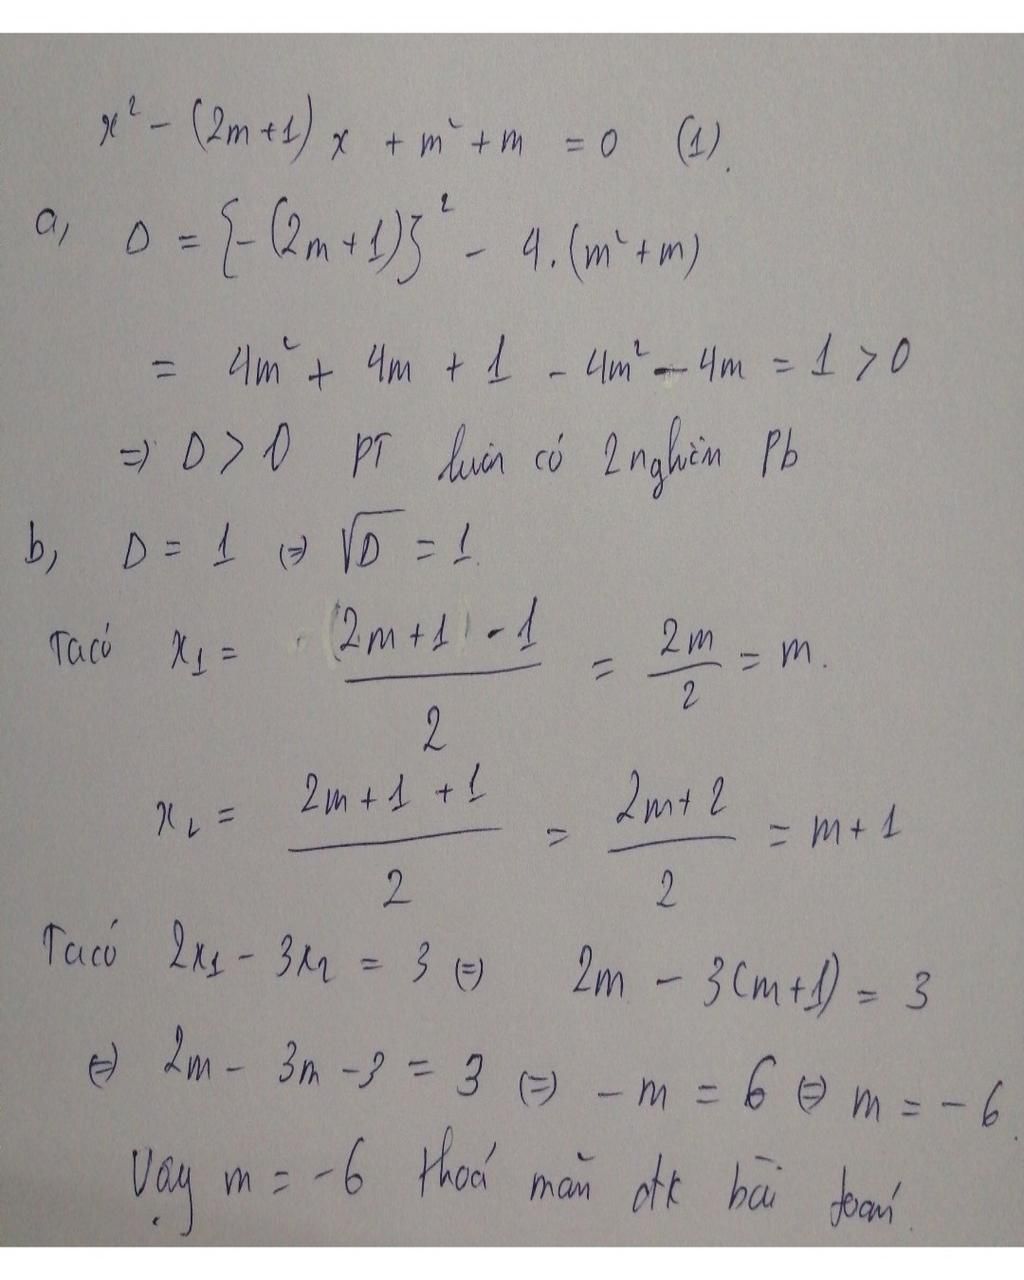 x² - (2m+1) x + m² + m = 0 (1).
a, Δ = {-(2m+1)}² - 4.(m²+m)
= 4m² + 4m + 1 - 4m² - 4m = 1 > 0
=> Δ > 0 PT luôn có 2 nghiệm Pb
b, Δ = 1 <=> √Δ = 1.
Ta có x₁ = \frac{(2m+1) - 1}{2} = \frac{2m}{2} = m.
x₂ = \frac{2m+1+1}{2} = \frac{2m+2}{2} = m+1
Ta có 2x₁ - 3x₂ = 3 <=> 2m - 3(m+1) = 3
<=> 2m - 3m - 3 = 3 <=> -m = 6 <=> m = -6.
Vậy m = -6 thoả mãn đk bài toán.